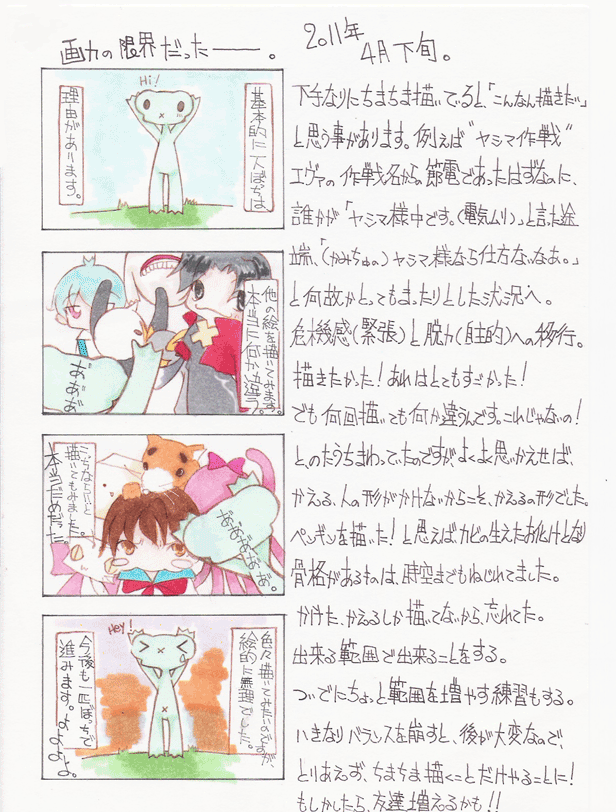 画力の限界だった――。
2011年
4月下旬。
Hi!
基本的に一人ぼっちは
理由があります。
他の絵を描いてみます。
本当に何か違う。
あ゛あ゛あ゛
こっちならいいと
描いてもみました。
本当にだめだった。
あ゛あ゛あ゛あ゛あ゛。
Hey!
色々描いてみたいのですが、
絵的に無理でした。
今後も一匹ぼっちで
進みます。よよよよ。
下手なりにちまちま描いていると、「こんなん描きたい」
と思う事があります。例えば“ヤシマ作戦”
エヴァの作戦名からの節電であったはずなのに、
誰かが「ヤシマ様中です。(電気ムリ)」と言た途
端、「(かみちゅの)ヤシマ様なら仕方ないなあ。」
と何故かとってもまったりとした状況へ。
危機感(緊張)と脱力(自主的)への移行。
描きたかった!あれはとてもすごかった!
でも何回描いても何か違うんです。これじゃないの!
とのたうちまわっていたのですが、よくよく思いかえせば、
かえる、人の形がかけないからこそ、かえるの形でした。
ペンギンを描いた!と思えばカビの生えたお化けとなり
骨格があるものは、時空までもねじれてました。
かけた、かえるしか描いてないから、忘れてた。
出来る範囲で出来ることをする。
ついでにちょっと範囲を増やす練習もする。
いきなりバランスを崩すと、後が大変なので、
とりあえず、ちまちま描くことだけやることに!
もしかしたら、友達増えるかも!!